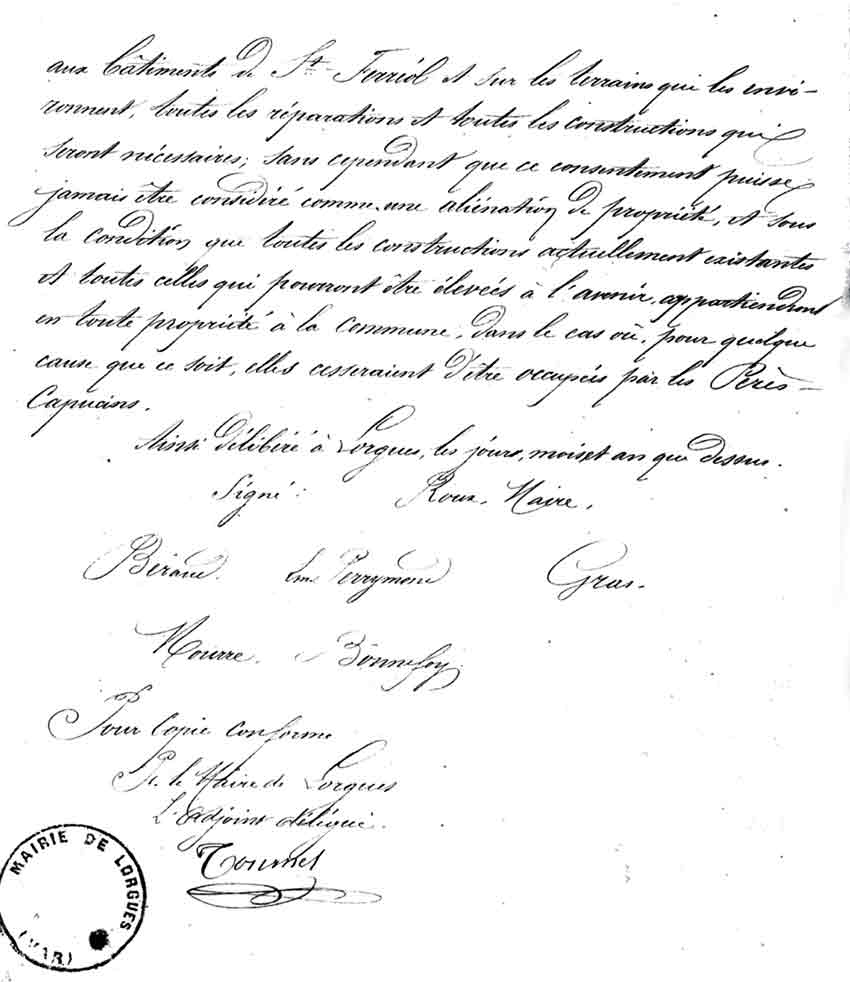 aux bâtiments de St Ferréol et sur les terrains qui les envi-
ronnent, toutes les réparations et toutes les constructions qui
seront nécessaires; sans cependant que ce consentement puisse
jamais être considéré comme une aliénation de propriété, et sous
la condition que toutes les constructions actuellement existantes
et toutes celles qui pourront être élevées à l'avenir, appartiendront
en toute propriété à la commune, dans le cas où, pour quelque
cause que ce soit, elles cesseraient d'être occupées par les Pères-
Capucins.
Ainsi délibéré à Lorgues, les jours, mois et an que dessus.
Signé: Roux, Maire,
Béraud. Perrymond Gras.
Mourre. Bonnefoy
Pour copie conforme
Pr le Maire de Lorgues
L'adjoint délégué.
MAIRIE DE LORGUES
(VAR)